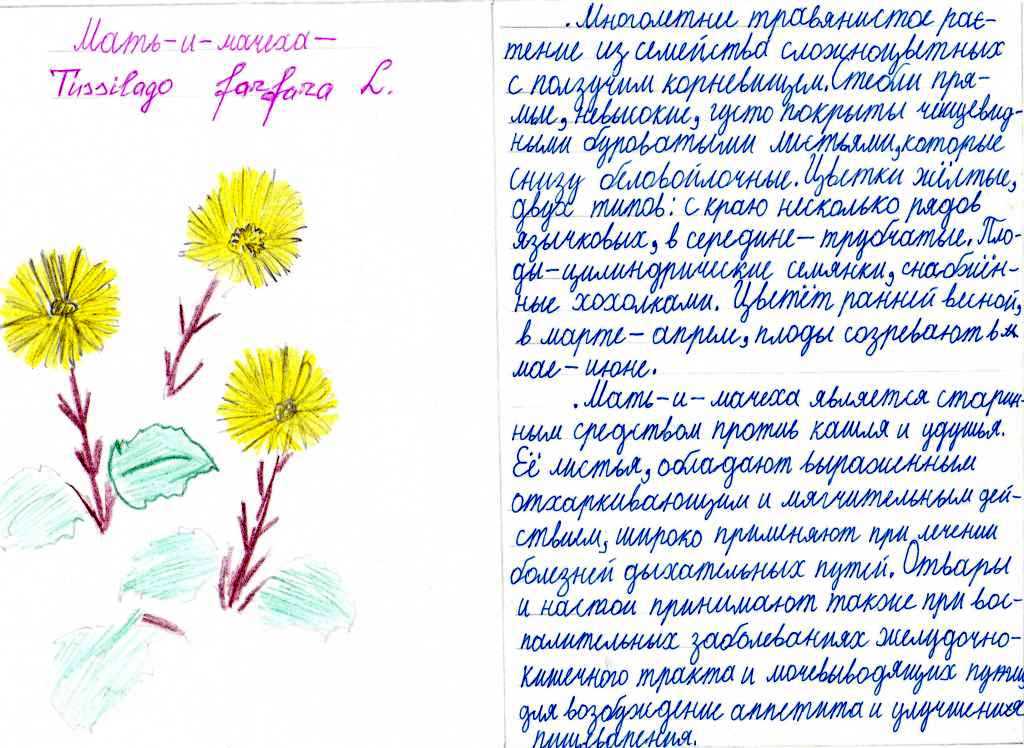 Мать-и-мачеха-
Tussilago farfara L.
. Многолетнее травянистое рас-
тение из семейства сложноцветных
с ползучим корневищем. Стебли пря-
мые, невысокие, густо покрыты чешуевид-
ными буроватыми листьями, которые
снизу беловойлочные. Цветки жёлтые,
двух типов: с краю несколько рядов
язычковых, в середине - трубчатые. Пло-
ды - цилиндрические семянки, снабжён-
ные хохолками. Цветёт ранней весной,
в марте - апреле, плоды созревают в м
мае - июне.
. Мать-и-мачеха является старин-
ным средством против кашля и удушья.
Её листья, обладают выраженным
отхаркивающим и мягчительным дей-
ствием, широко применяют при лечении
болезней дыхательных путей. Отвары
и настои принимают также при вос-
палительных заболеваниях желудочно-
кишечного тракта и мочевыводящих путей,
для возбуждение аппетита и улучшения
пищеварения.